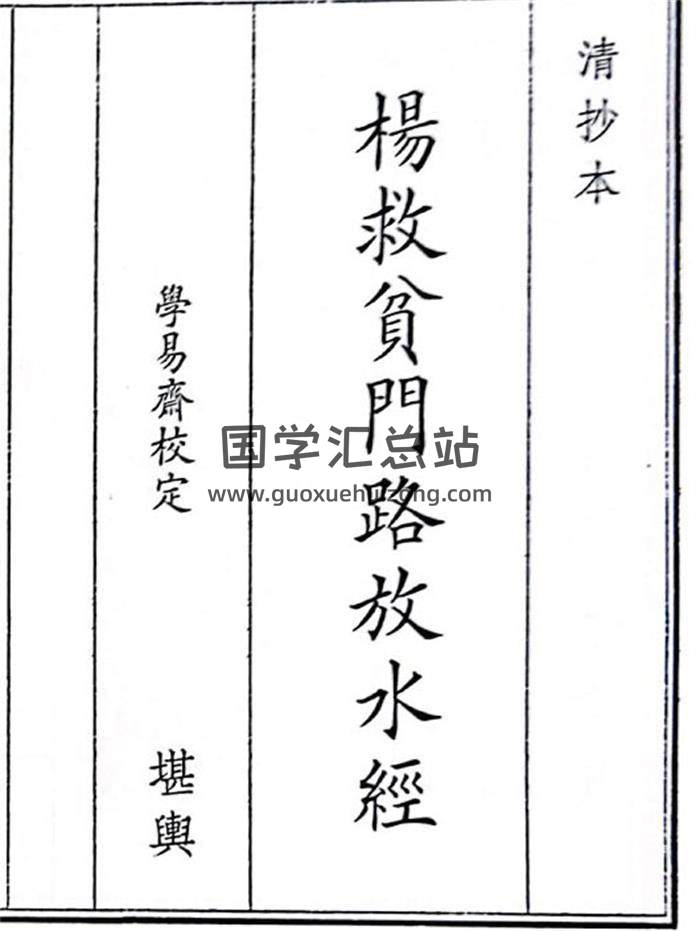 清抄本
楊救貧門路放水經
學易齋校定
堪輿
国学汇总站
www.guoxuehuizong.com